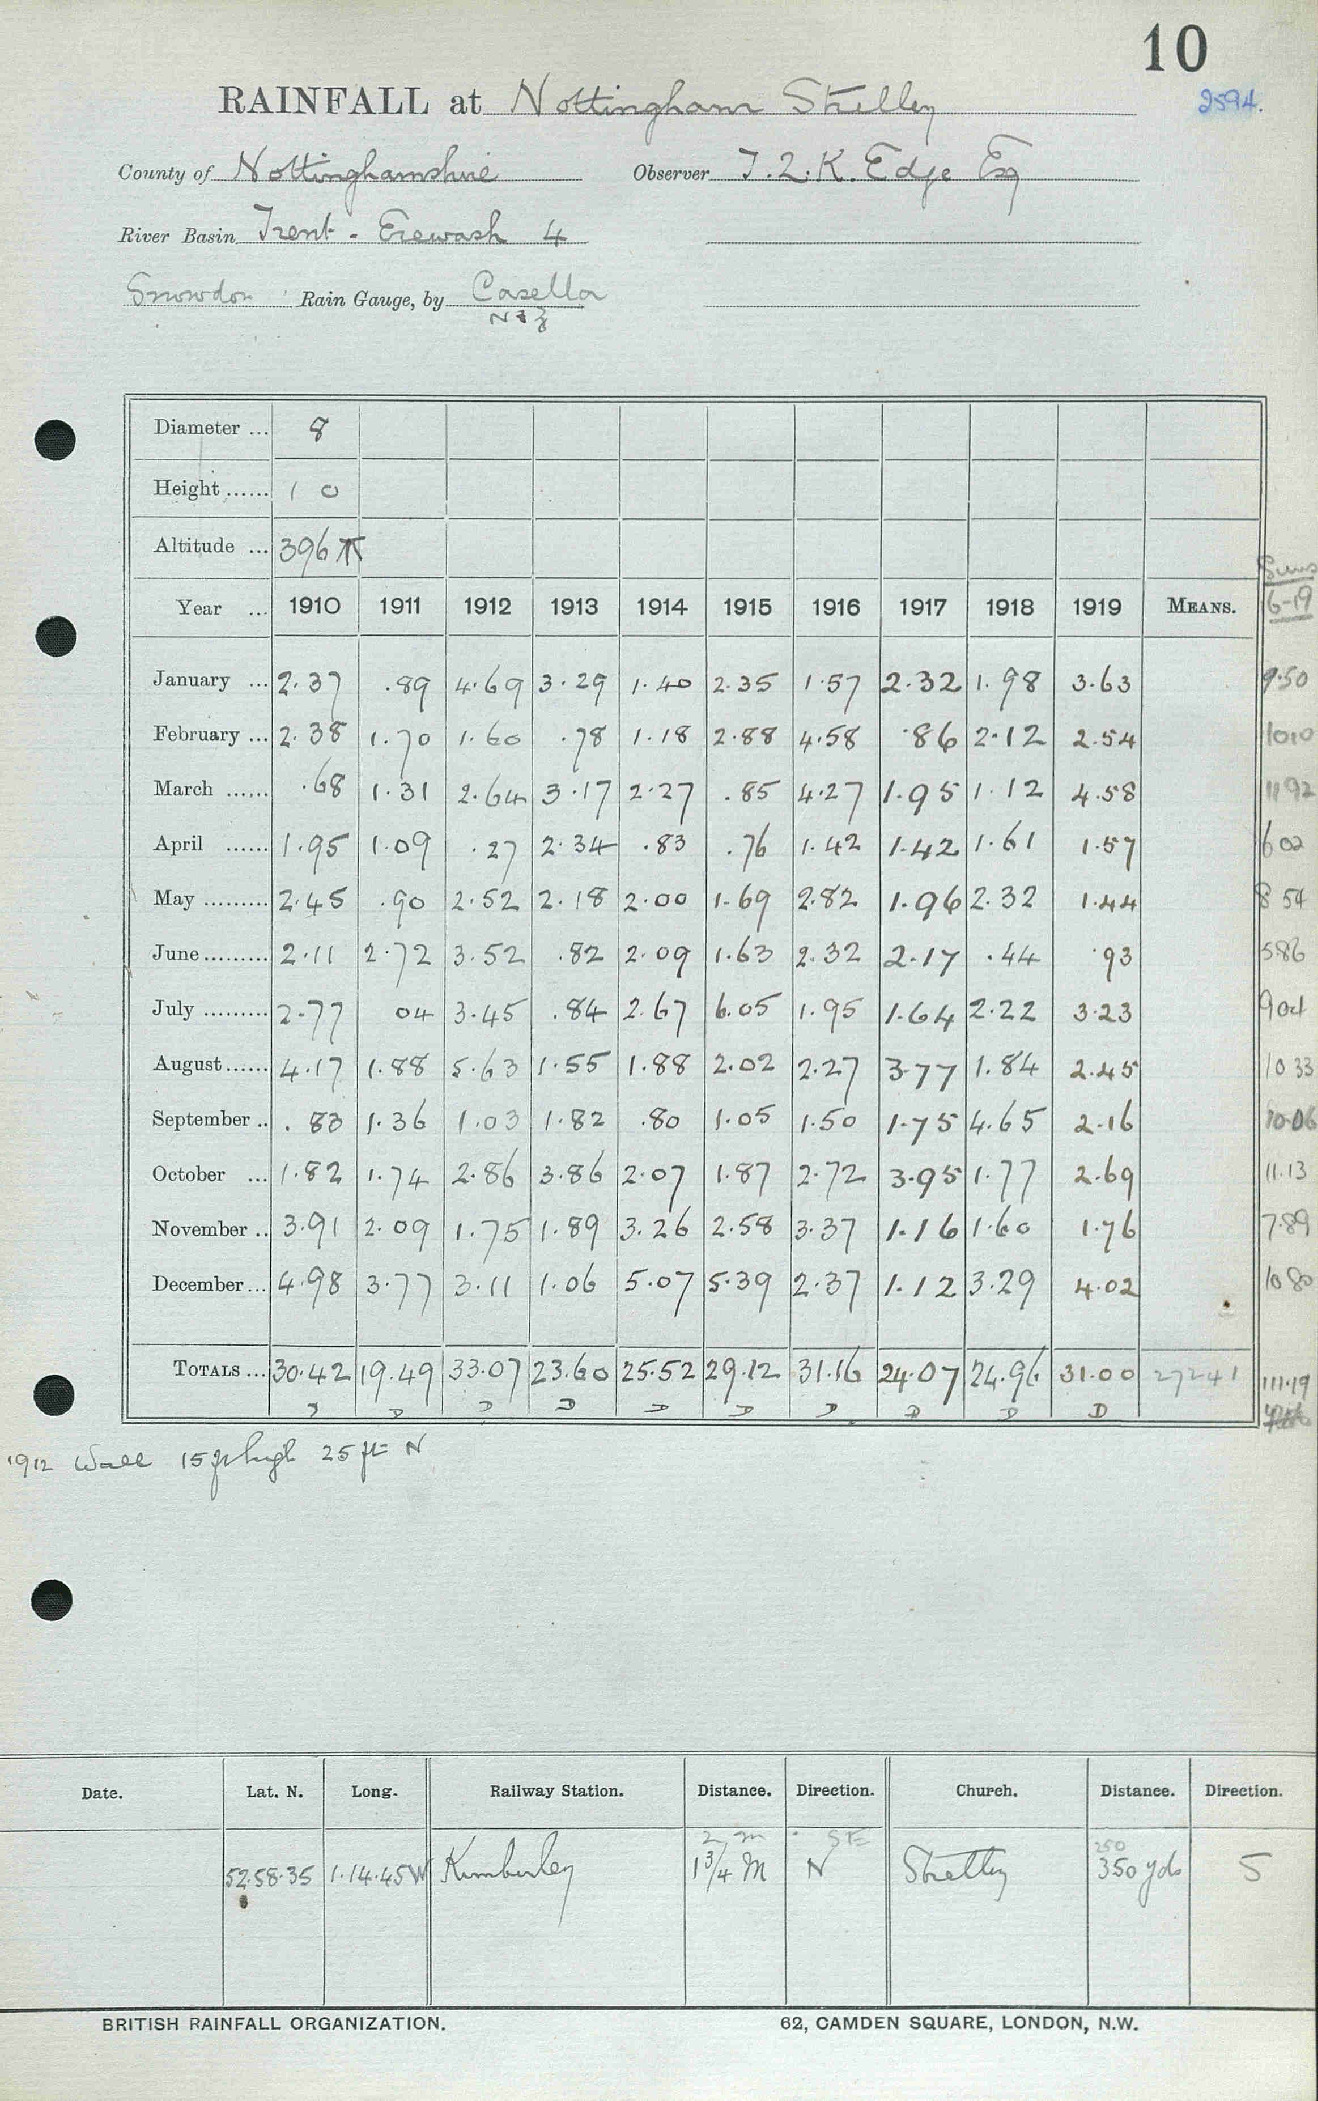 10
RAINFALL at Nottingham Strelley
2594.
County of Nottinghamshire Observer T.L.K. Edge Esq
River Basin Trent - Erewash 4
Snowdon Rain Gauge, by Casella
Diameter ... 8
Height ...... 1 0
Altitude ... 396
Sums
Year ... 1910 1911 1912 1913 1914 1915 1916 1917 1918 1919 MEANS. 16-19
January ... 2.37 .89 4.69 3.29 1.40 2.35 1.57 2.32 1.98 3.63 9.50
February ... 2.38 1.70 1.60 .78 1.18 2.88 4.58 .86 2.12 2.54 1010
March ...... .68 1.31 2.64 3.17 2.27 .85 4.27 1.95 1.12 4.58 1192
April ...... 1.95 1.09 .27 2.34 .83 .76 1.42 1.42 1.61 1.57 602
May ......... 2.45 .90 2.52 2.18 2.00 1.69 2.82 1.96 2.32 1.44 8 54
June ......... 2.11 2.72 3.52 .82 2.09 1.63 2.32 2.17 .44 .93 586
July ......... 2.77 04 3.45 .84 2.67 6.05 1.95 1.64 2.22 3.23 904
August ...... 4.17 1.88 5.63 1.55 1.88 2.02 2.27 3.77 1.84 2.45 10 33
September .. .83 1.36 1.03 1.82 .80 1.05 1.50 1.75 4.65 2.16 10.06
October ... 1.82 1.74 2.86 3.86 2.07 1.87 2.72 3.95 1.77 2.69 11.13
November .. 3.91 2.09 1.75 1.89 3.26 2.58 3.37 1.16 1.60 1.76 7.89
December ... 4.98 3.77 3.11 1.06 5.07 5.39 2.37 1.12 3.29 4.02 10 80
TOTALS ... 30.42 19.49 33.07 23.60 25.52 29.12 31.16 24.07 24.96 31.00 27241 111.19
D D D D D D D D D
1912 Wall 15 ft high 25 ft N
Date. Lat. N. Long. Railway Station. Distance. Direction. Church. Distance. Direction.
2 m SE 250
52.58.35 1.14.45W Kimberley 1 3/4 M N Strelley 350 yds S
BRITISH RAINFALL ORGANIZATION. 62, CAMDEN SQUARE, LONDON, N.W.